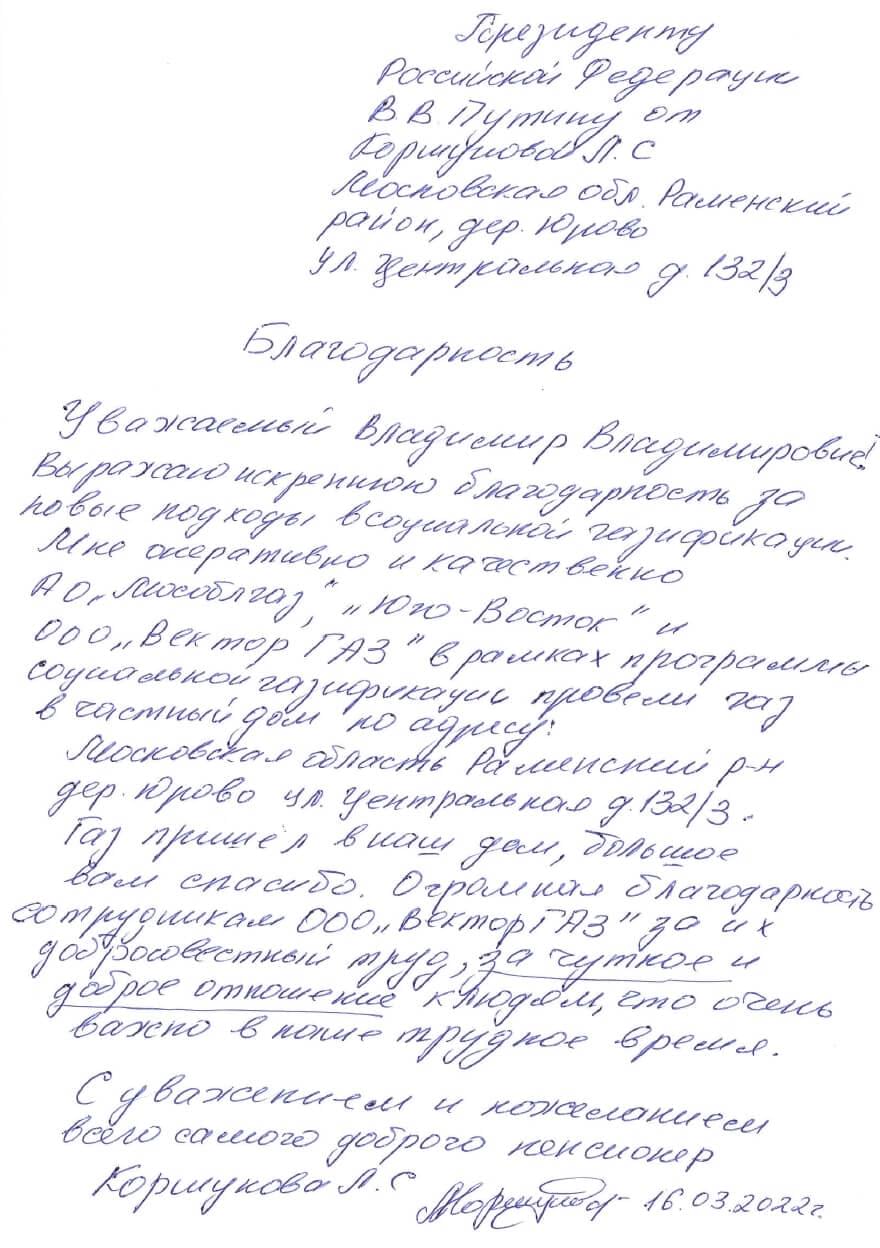 Президенту
Российской Федерации
В.В. Путину от
Коршуновой Л.С
Московская обл. Раменский
район, дер. Юрово
ул. Центральная д. 132/3
Благодарность
Уважаемый Владимир Владимирович!
Выражаю искреннюю благодарность за
новые подходы в социальной газификации.
Мне оперативно и качественно
АО „Мособлгаз", „Юго-Восток" и
ООО „Вектор ГАЗ" в рамках программы
социальной газификации провели газ
в частный дом по адресу:
Московская область Раменский р-н
дер. Юрово ул. Центральная д. 132/3.
Газ пришёл в наш дом, большое
вам спасибо. Огромная благодарность
сотрудникам ООО „Вектор ГАЗ" за их
добросовестный труд, за чуткое и
доброе отношение к людям, что очень
важно в наше трудное время.
С уважением и пожеланием
всего самого доброго пенсионер
Коршунова Л.С
16.03.2022г.